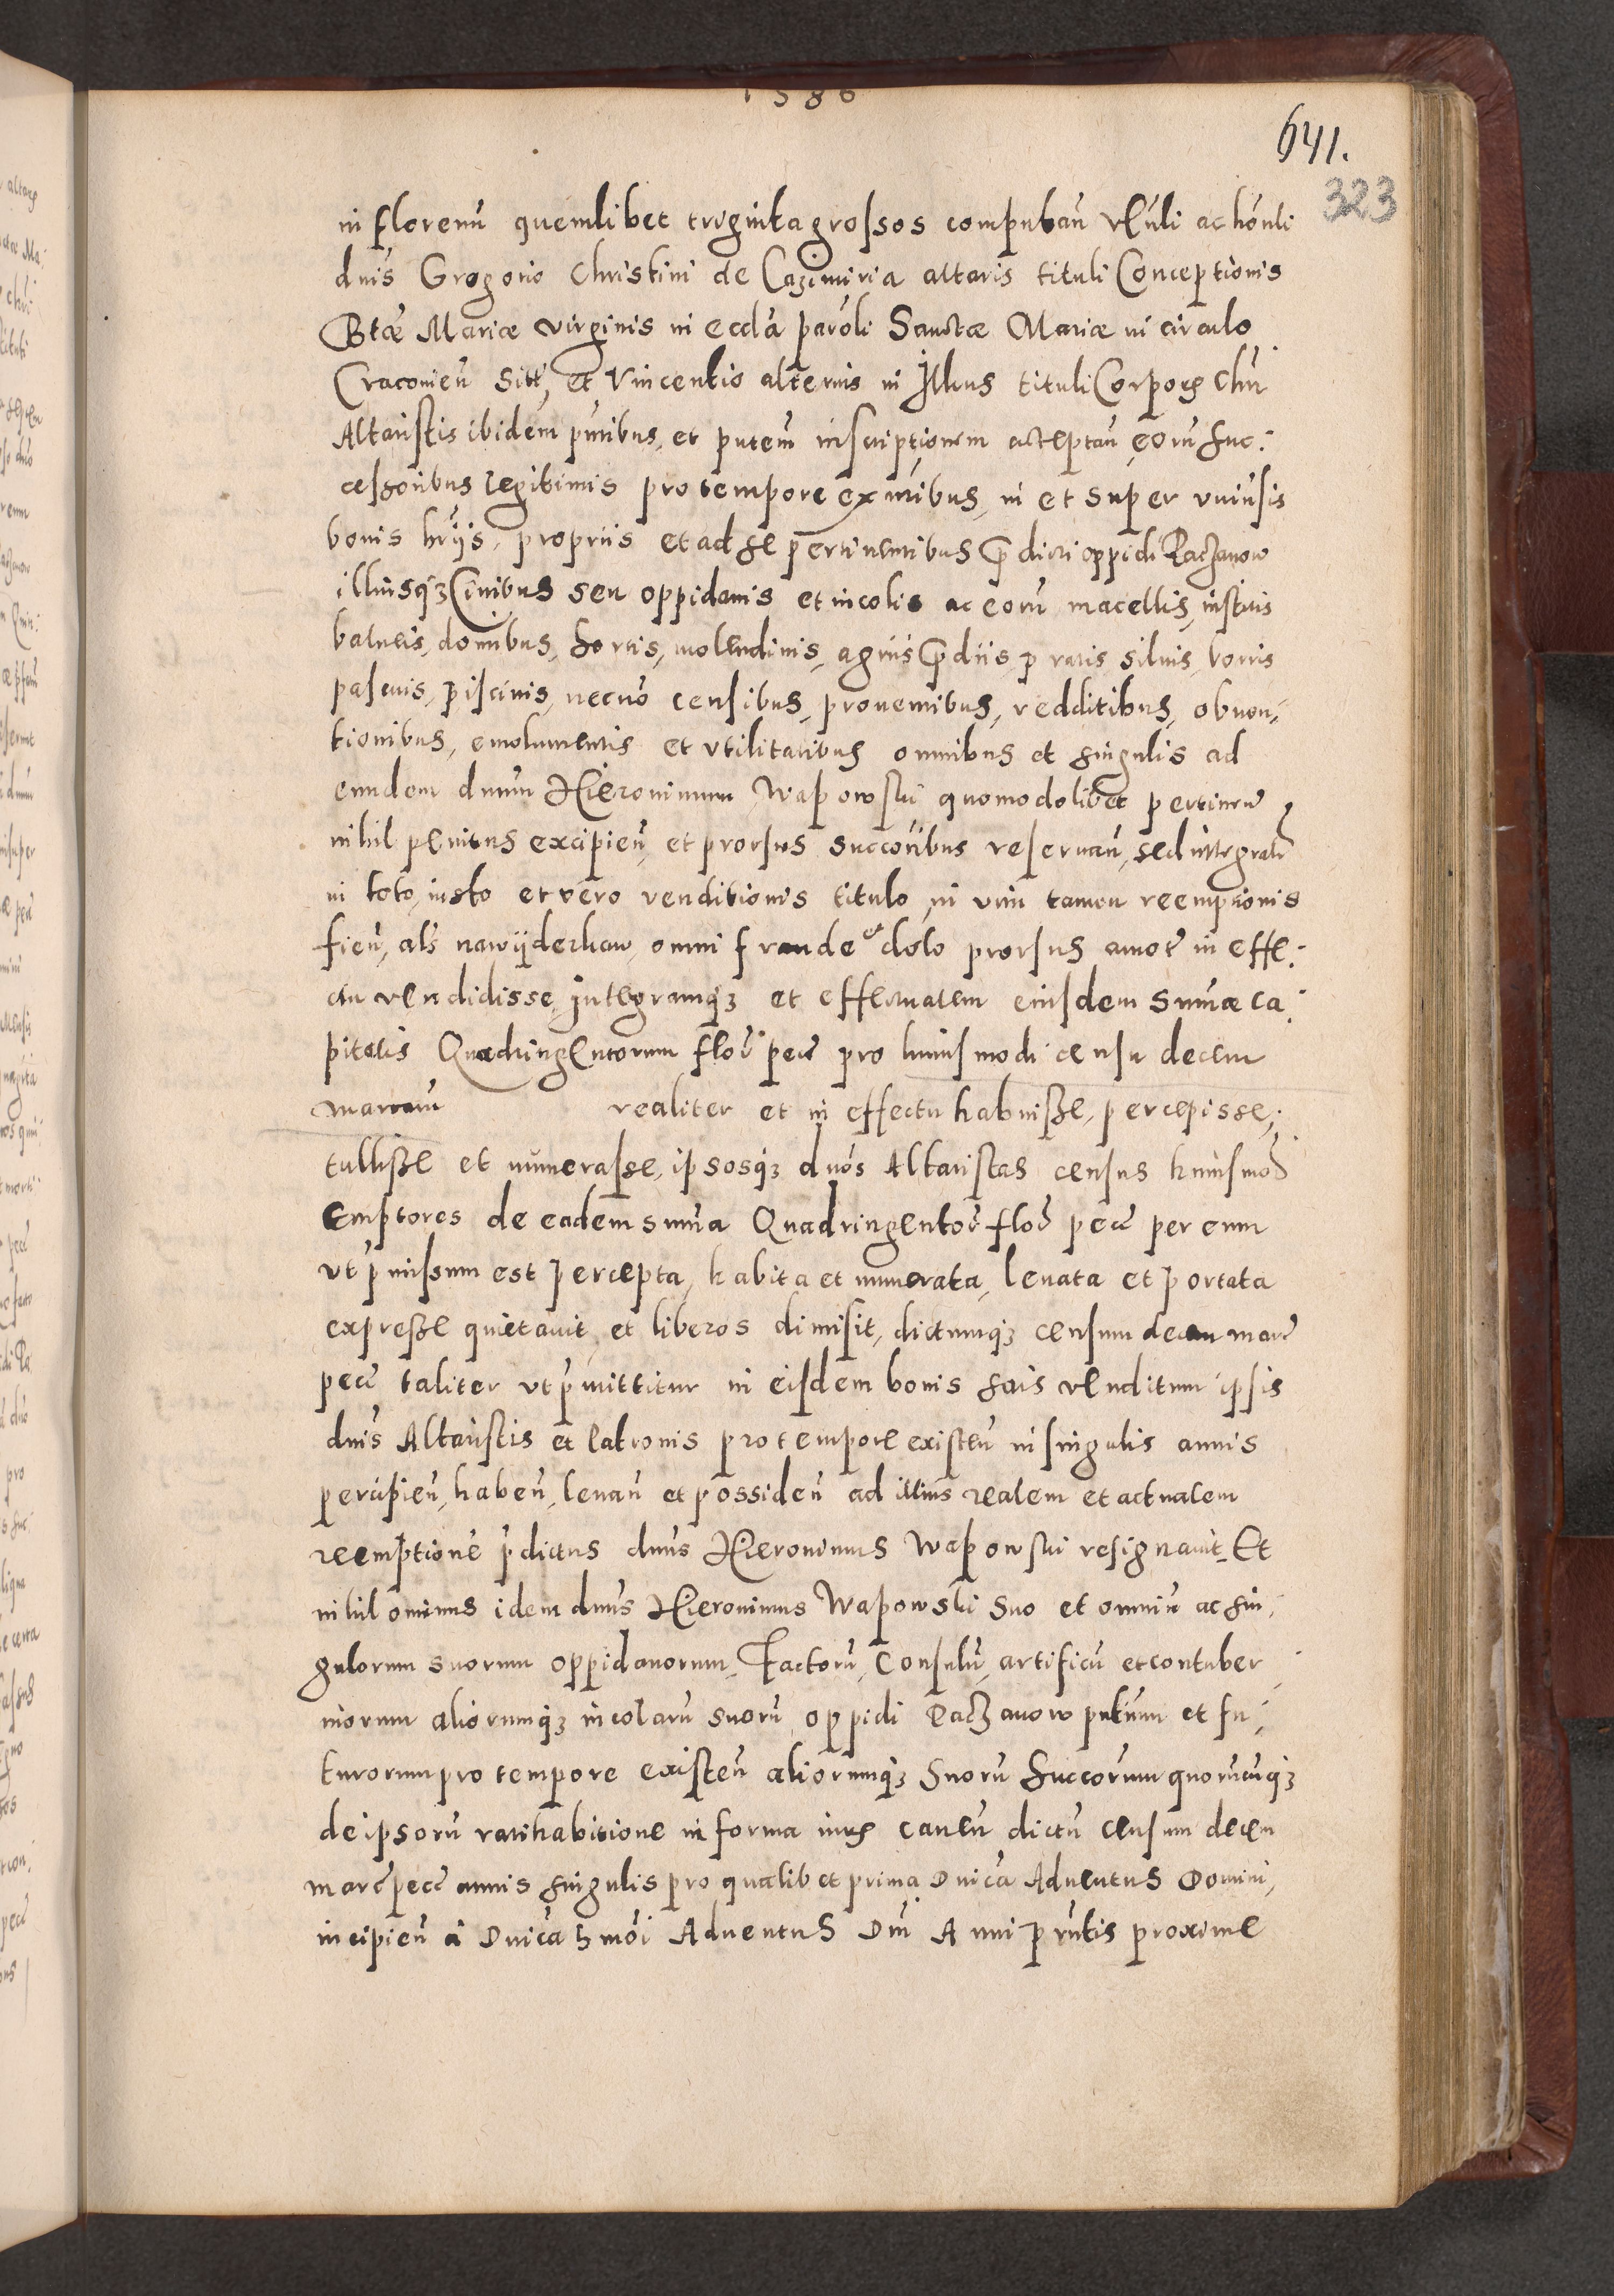 1586
641.
323
in florenū quemlibet triginta grossos computañ vēnli ac hōnli
dnis Gregorio Christini de Cazimiria altaris tituli Conceptionis
Btæ Mariæ virginis in eccla paroli Sanctæ Mariæ in circulo
Cracovieñ sitt, et Vincentio alterius in Illius tituli Corporis Chri
Altaristis ibidem pntibus, et pntem inscriptionem acceptañ eorū suc:
cessoribus legitimis pro tempore exñtibus, in et super vniūsis
bonis hriis, propriis et ad se pertinentibus prædicti oppidi Paczanow
illiusq₃ Civibus seu oppidanis et incolis ac eorū macellis, institis
balneis, domibus, hortis, molendinis, agris prædiis, pratis silvis, borris
pascuis, piscinis, necnō censibus, proventibus, redditibus, obven,
tionibus, emolumentis et vtilitatibus omnibus et singulis ad
eundem dnum Hieronimum Wapowski quomodolibet pertineñ,
nihil penitus excipieñ, et prorsus succōribus reservañ, sed integrali
in toto, iusto et vero venditionis titulo, in vim tamen reemptionis
fieñ, als nawyderkaw, omni fraude et dolo prorsus amoť in effe:
ctu vendidisse, Integramq₃ et effectualem eiusdem sum̄æ ca:
pitalis Quadringentorum floř pecť pro huiusmodi censu decem
marcarū realiter et in effectu habuisse, percepisse,
tullisse et numerasse, ipsosq₃ dnōs Altaristas census huiusmodi
Emptores de eadem sum̄a Quadringentoř floř pecť per eum
vt pmissum est percepta, habita et numerata, levata et portata
expresse quietavit et liberos dimisit, dictumq₃ censum decem marč
pecť taliter vt pmittitur in eisdem bonis suis venditum ipsis
dnis Altaristis et Patronis pro tempore existeñ in singulis annis
percipieñ, habeñ, levañ et possideñ ad illius realem et actualem
reemptionē pdictus dnus Hieronimus Wapowski resignavit. Et
nihilominus idem dnus Hieronimus Wapowski suo et omniū ac sin,
gulorum suorum oppidanorum, Factorū, Consulū, artificū et contuber,
niorum aliorumq₃ incolarū suorū oppidi Paczanow pntium et fu,
turorum pro tempore existeñ aliorumq₃ suorū succōrum quorūcūq₃
de ipsorū ratihabitione in forma iuris caveñ dictū censum decem
marč pecť annis singulis pro qualibet prima Dnica Adventus Domini,
incipieñ à Dnica hmōi Adventus Dni Anni pntis proxime